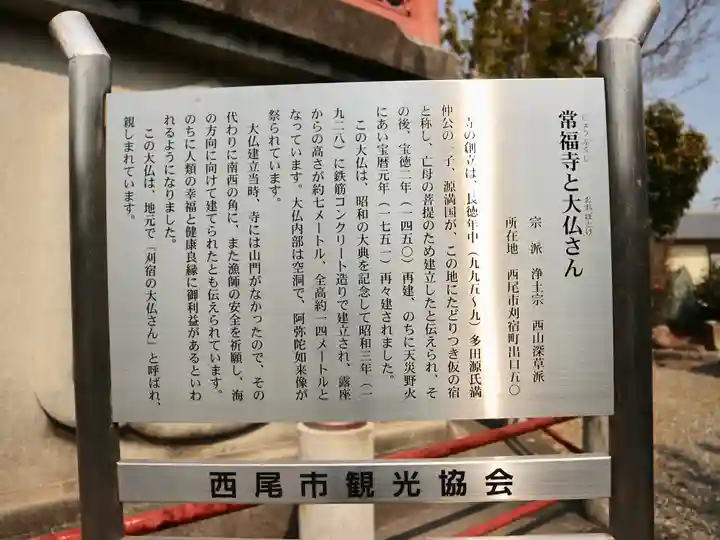 じょうふくじ
おおぼとけ
常福寺と大仏さん
宗派 浄土宗 西山深草派
所在地 西尾市刈宿町出口五〇
寺の創立は、長徳年中(九九五〜九)多田源氏満
仲公の一子、源満国が、この地にたどりつき仮の宿
と称し、亡母の菩提のため建立したと伝えられ、そ
の後、宝徳二年(一四五〇)再建、のちに天災野火
にあい宝暦元年(一七五一)再々建されました。
この大仏は、昭和の大典を記念して昭和三年(一
九二八)に鉄筋コンクリート造りで建立され、露座
からの高さが約七メートル、全高約一四メートルと
なっています。大仏内部は空洞で、阿弥陀如来像が
祭られています。
大仏建立当時、寺には山門がなかったので、その
代わりに南西の角に、また漁師の安全を祈願し、海
の方向に向けて建てられたとも伝えられています。
のちに人類の幸福と健康良縁に御利益があるといわ
れるようになりました。
この大仏は、地元で『刈宿の大仏さん』と呼ばれ、
親しまれています。
西尾市観光協会